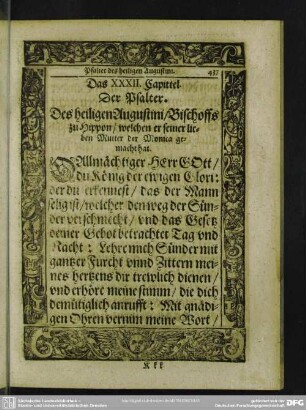 Psalter des heiligen Augustini. 437
Das XXXII. Capittel
Der Psalter.
Des heiligen Augustini / Bischoffs
zu Hippon / welchen er seiner lie-
ben Mutter der Monica ge-
macht hat.
O Allmächtiger HErr GOtt /
du König der ewigen Glori:
der du erkennest / das der Mann
selig ist / welcher den weg der Sün-
der verschmecht / vnd das Gesetz
deiner Gebot betrachtet Tag vnd
Nacht: Lehre mich Sünder mit
gantzer Furcht vnnd Zittern mei-
nes hertzens dir trewlich dienen /
vnd erhöre meine stimm / die dich
demütiglich anrufft: Mit gnädi-
gen Ohren vernim meine Wort /